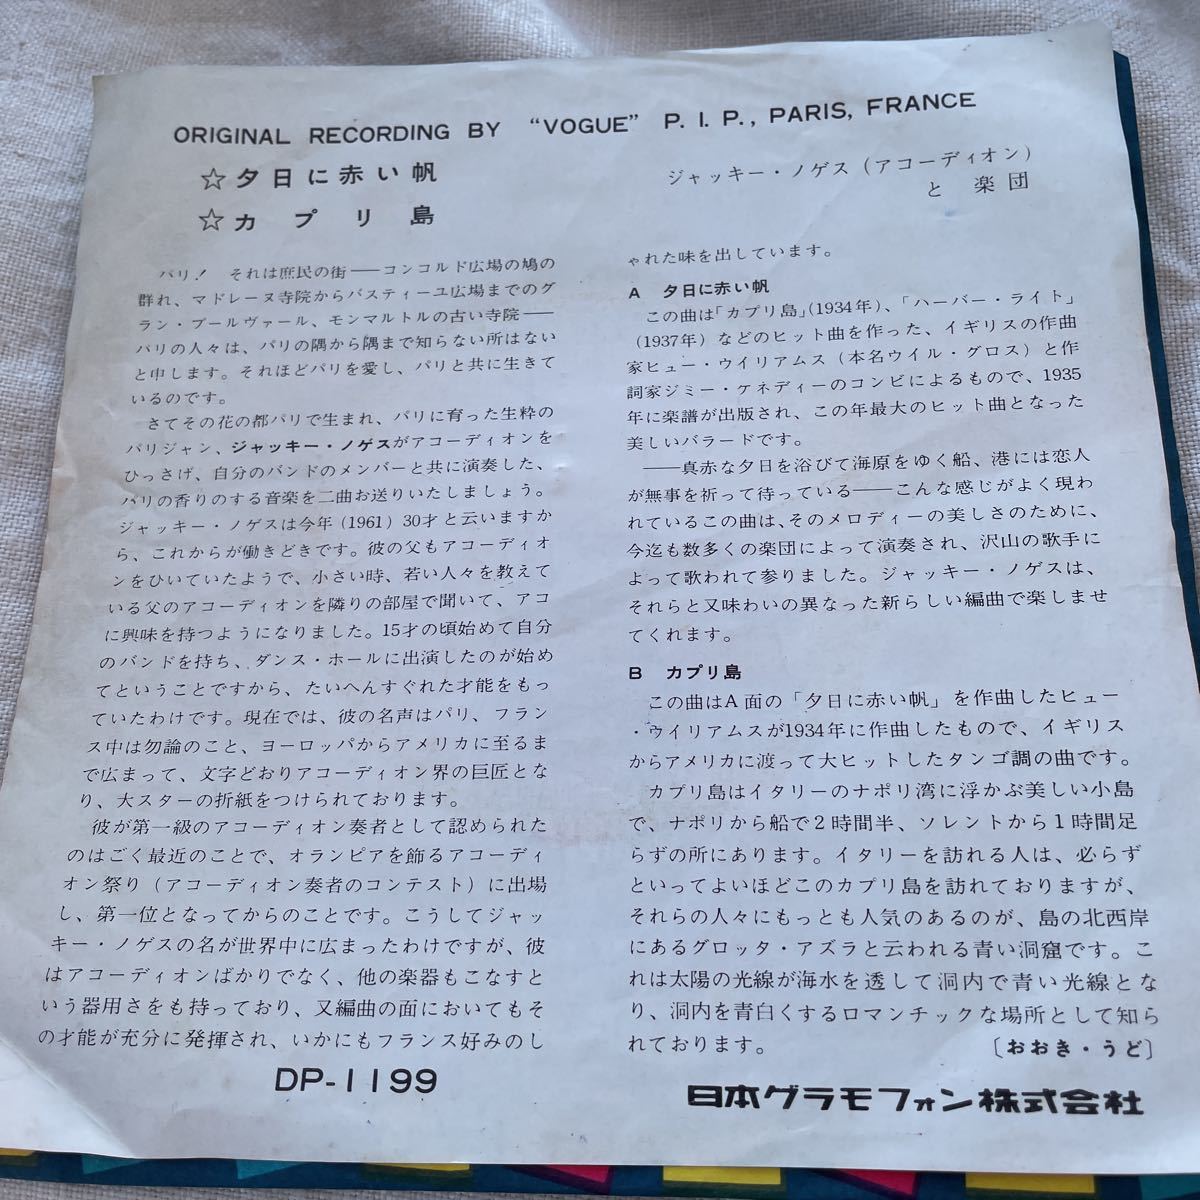 ORIGINAL RECORDING BY "VOGUE" P. I. P., PARIS, FRANCE
☆夕日に赤い帆
☆カプリ島
ジャッキー・ノゲス(アコーディオン)
と 楽団
パリ! それは庶民の街――コンコルド広場の鳩の
群れ、マドレーヌ寺院からバスティーユ広場までのグ
ラン・ブールヴァール、モンマルトルの古い寺院――
パリの人々は、パリの隅から隅まで知らない所はない
と申します。それほどパリを愛し、パリと共に生きて
いるのです。
さてその花の都パリで生まれ、パリに育った生粋の
パリジャン、ジャッキー・ノゲスがアコーディオンを
ひっさげ、自分のバンドのメンバーと共に演奏した、
パリの香りのする音楽を二曲お送りいたしましょう。
ジャッキー・ノゲスは今年(1961)30才と云いますか
ら、これからが働きどきです。彼の父もアコーディオ
ンをひいていたようで、小さい時、若い人々を教えて
いる父のアコーディオンを隣りの部屋で聞いて、アコ
に興味を持つようになりました。15才の頃始めて自分
のバンドを持ち、ダンス・ホールに出演したのが始め
てということですから、たいへんすぐれた才能をもっ
ていたわけです。現在では、彼の名声はパリ、フラン
ス中は勿論のこと、ヨーロッパからアメリカに至るま
で広まって、文字どおりアコーディオン界の巨匠とな
り、大スターの折紙をつけられております。
彼が第一級のアコーディオン奏者として認められた
のはごく最近のことで、オランピアを飾るアコーディ
オン祭り(アコーディオン奏者のコンテスト)に出場
し、第一位となってからのことです。こうしてジャッ
キー・ノゲスの名が世界中に広まったわけですが、彼
はアコーディオンばかりでなく、他の楽器もこなすと
いう器用さをも持っており、又編曲の面においてもそ
の才能が充分に発揮され、いかにもフランス好みのし
ゃれた味を出しています。
A 夕日に赤い帆
この曲は「カプリ島」(1934年)、「ハーバー・ライト」
(1937年)などのヒット曲を作った、イギリスの作曲
家ヒュー・ウイリアムス(本名ウイル・グロス)と作
詞家ジミー・ケネディーのコンビによるもので、1935
年に楽譜が出版され、この年最大のヒット曲となった
美しいバラードです。
――真赤な夕日を浴びて海原をゆく船、港には恋人
が無事を祈って待っている――こんな感じがよく現わ
れているこの曲は、そのメロディーの美しさのために、
今迄も数多くの楽団によって演奏され、沢山の歌手に
よって歌われて参りました。ジャッキー・ノゲスは、
それらと又味わいの異なった新らしい編曲で楽しませ
てくれます。
B カプリ島
この曲はA面の「夕日に赤い帆」を作曲したヒュー
・ウイリアムスが1934年に作曲したもので、イギリス
からアメリカに渡って大ヒットしたタンゴ調の曲です。
カプリ島はイタリーのナポリ湾に浮かぶ美しい小島
で、ナポリから船で2時間半、ソレントから1時間足
らずの所にあります。イタリーを訪れる人は、必らず
といってよいほどこのカプリ島を訪れておりますが、
それらの人々にもっとも人気のあるのが、島の北西岸
にあるグロッタ・アズラと云われる青い洞窟です。こ
れは太陽の光線が海水を透して洞内で青い光線とな
り、洞内を青白くするロマンチックな場所として知ら
れております。
〔おおき・うど〕
DP-1199
日本グラモフォン株式会社